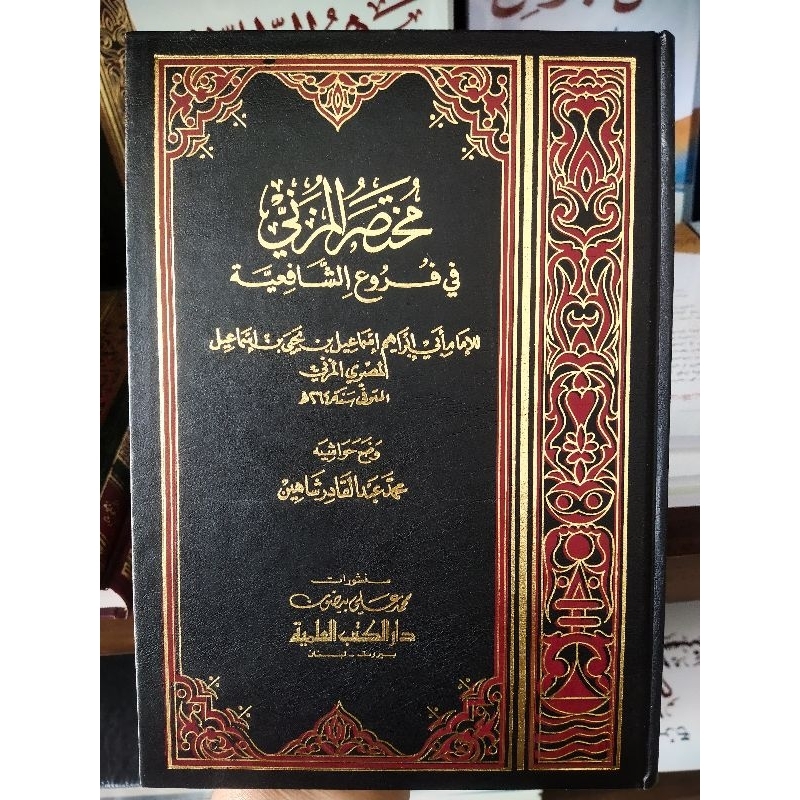 مُختصَرُ المُزَنيّ
في فُرُوع الشَّافِعيَّة
للإمام أبي إبراهيم إسماعيل بن يحيى بن إسماعيل
المصري المزني
المتوفى سنة ٢٦٤هـ
وضع حواشيه
محمد عبد القادر شاهين
منشورات
محمد علي بيضون
دار الكتب العلمية
بيروت - لبنان